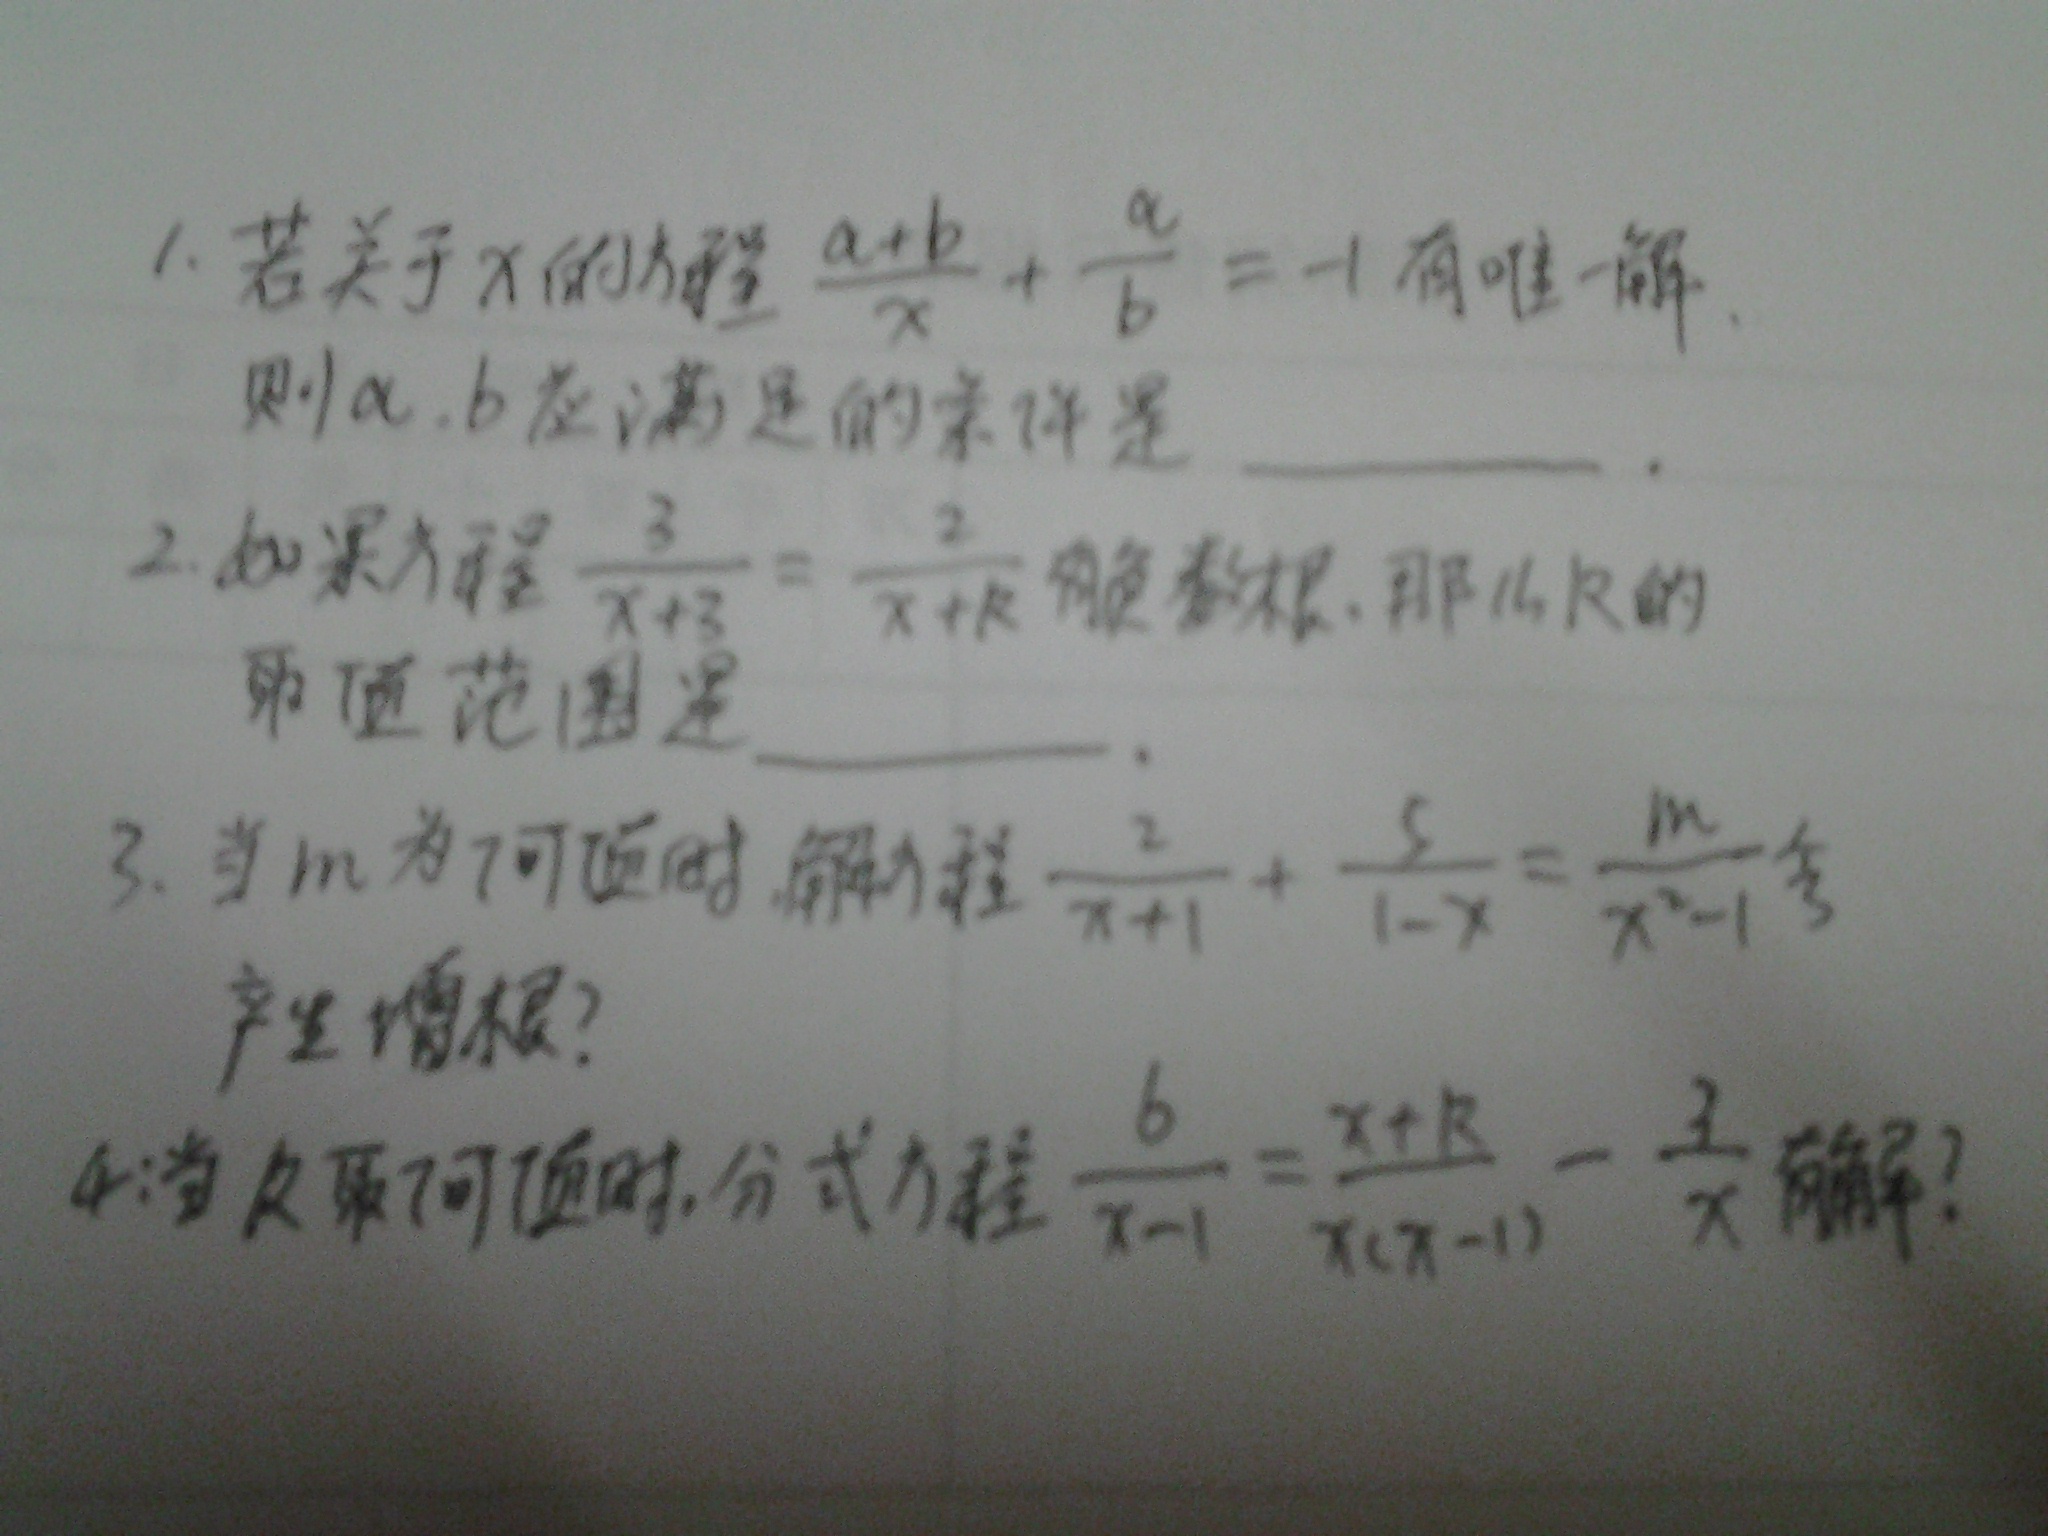 1. 若关于x的方程 (a+b)/x + a/b = -1 有唯一解.
则a.b应满足的条件是 ________ .
2. 如果方程 3/(x+3) = 2/(x+k) 有负数根. 那么k的
取值范围是 ________ .
3. 当m为何值时, 解方程 2/(x+1) + 5/(1-x) = m/(x²-1) 会
产生增根?
4: 当k取何值时. 分式方程 6/(x-1) = (x+k)/(x(x-1)) - 3/x 有解?